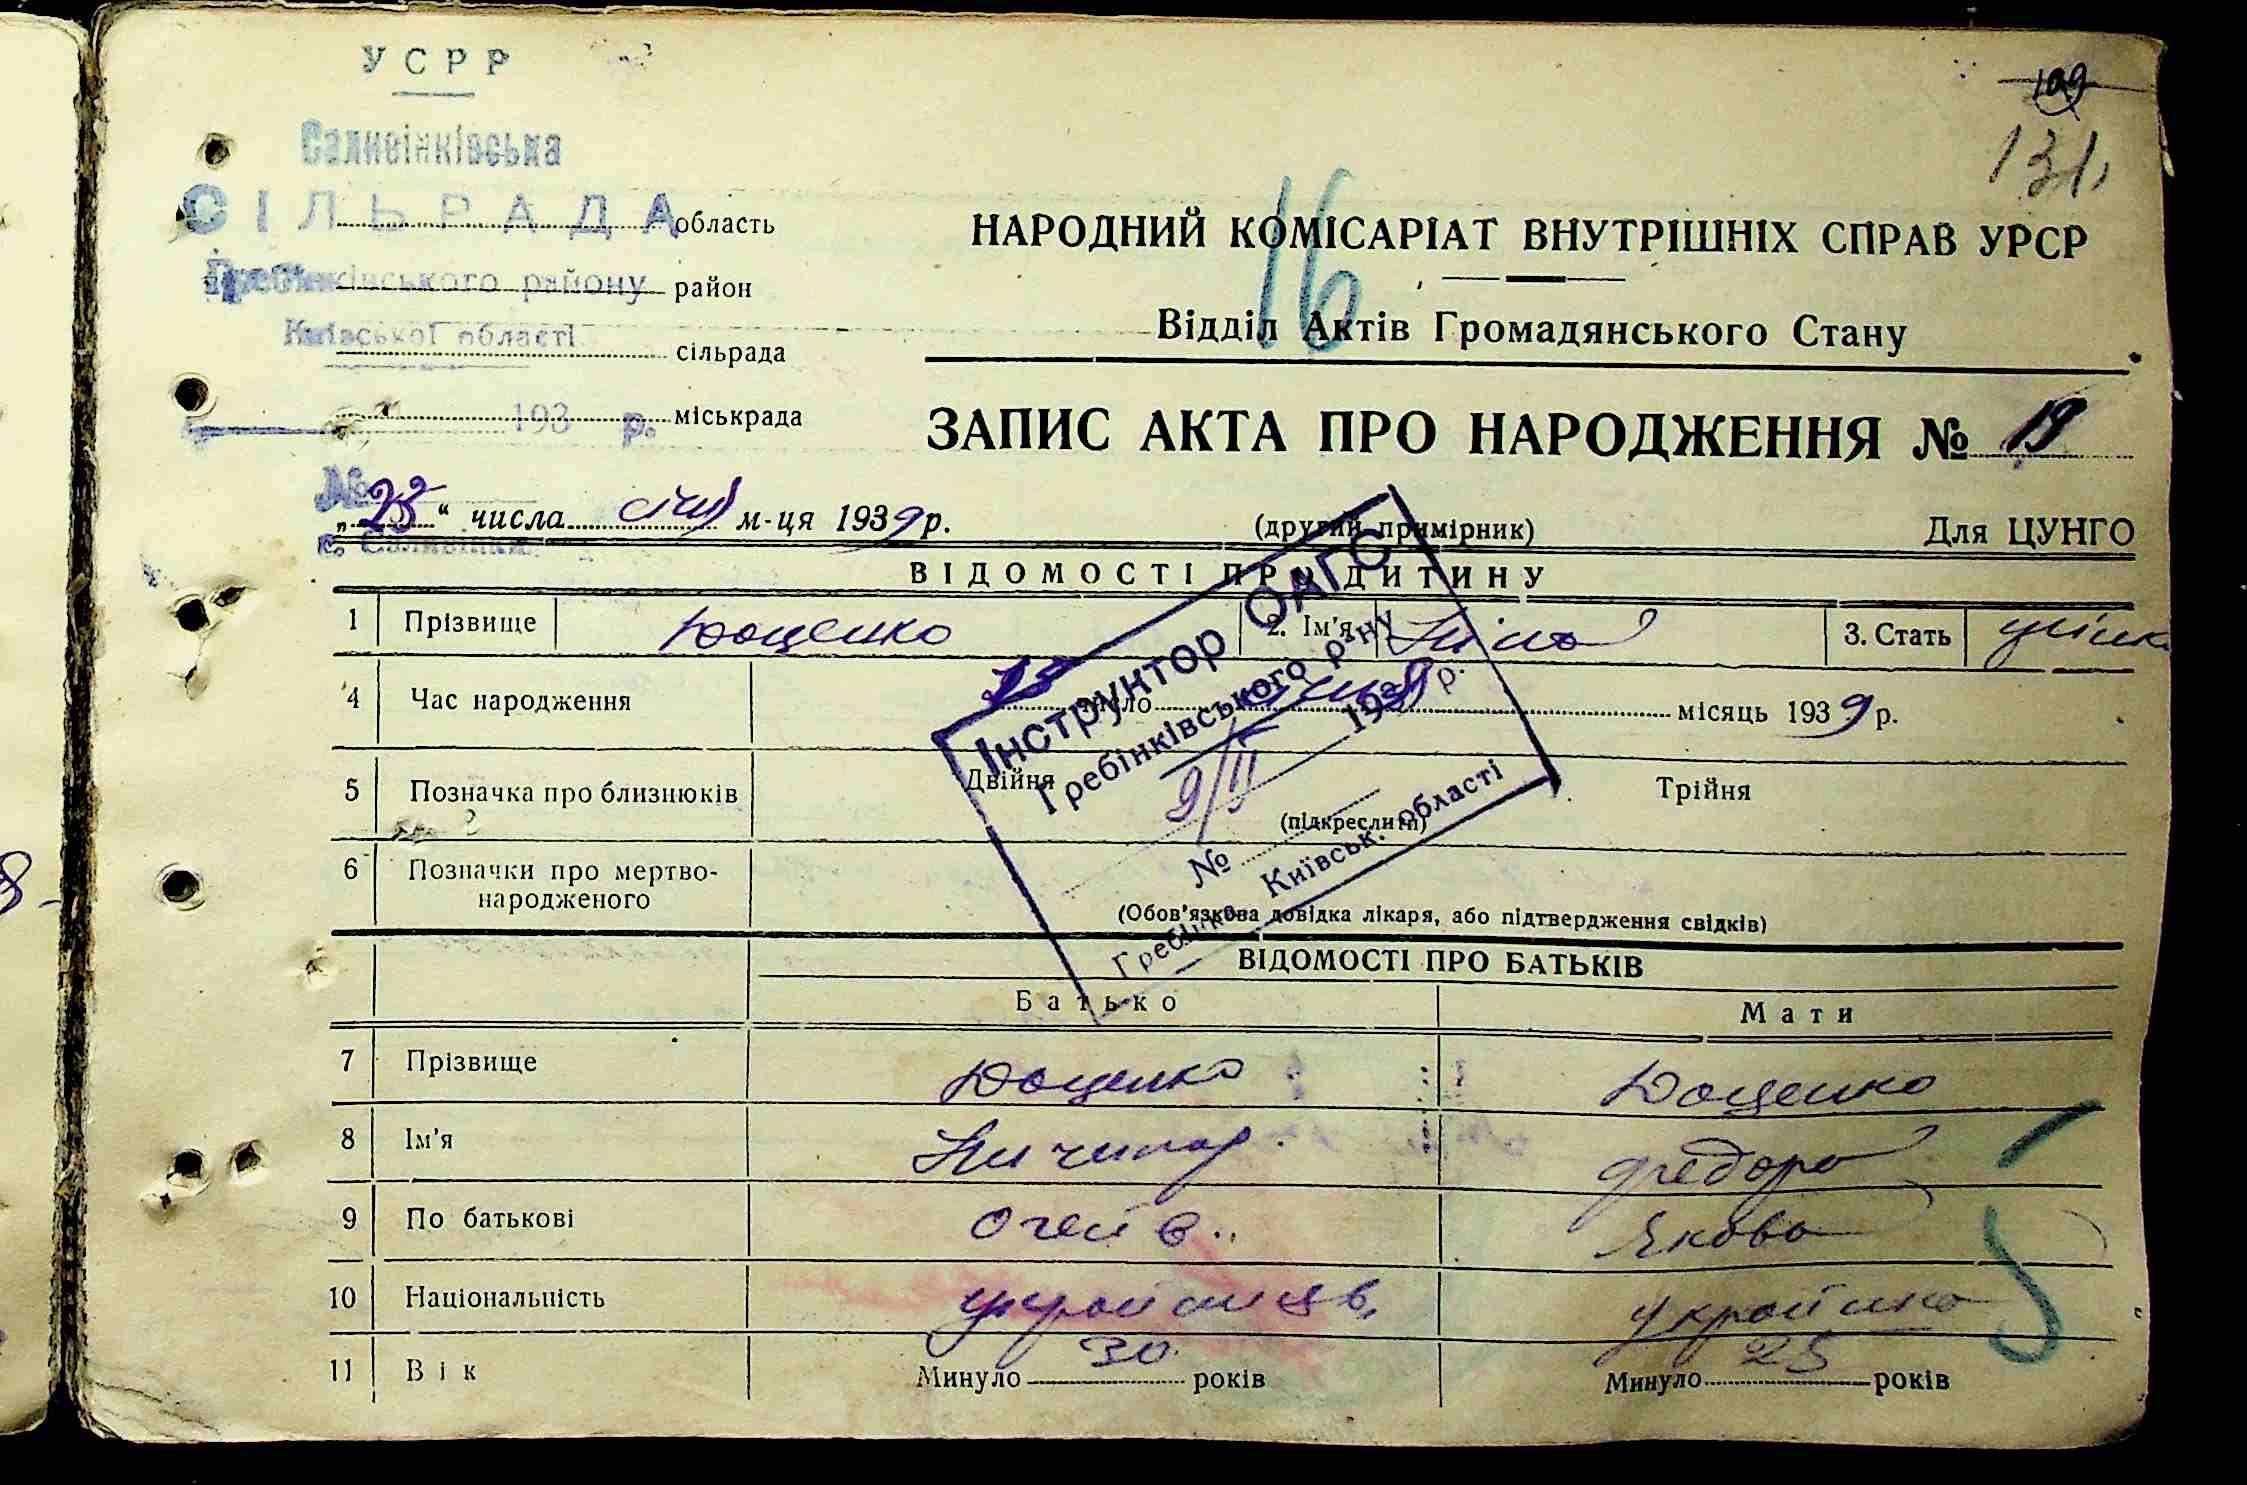 УСРР
109
131
Саливінківська
СІЛЬРАДА область
Гребінківського району район
Київської області сільрада
193 р. міськрада
16
НАРОДНИЙ КОМІСАРІАТ ВНУТРІШНІХ СПРАВ УРСР
Відділ Актів Громадянського Стану
ЗАПИС АКТА ПРО НАРОДЖЕННЯ № 19
№
„ “ числа січн м-ця 1939 р. (другий примірник) Для ЦУНГО
с. Саливінки
ВІДОМОСТІ ПРО ДИТИНУ
1 Прізвище Доценко 2. Ім'я Ніна 3. Стать жінк
4 Час народження число місяць 1939 р.
5 Позначка про близнюків Двійня Трійня
(підкреслити)
6 Позначки про мертво-
народженого
(Обов'язкова довідка лікаря, або підтвердження свідків)
Інструктор ОАГС
Гребінківського р-ну
9/II 1939 р.
№
Гребінка Київськ. області
ВІДОМОСТІ ПРО БАТЬКІВ
Батько Мати
7 Прізвище Доценко Доценко
8 Ім'я Ничипор Федора
9 По батькові Якова
10 Національність українець українка
11 Вік Минуло 30 років Минуло 25 років